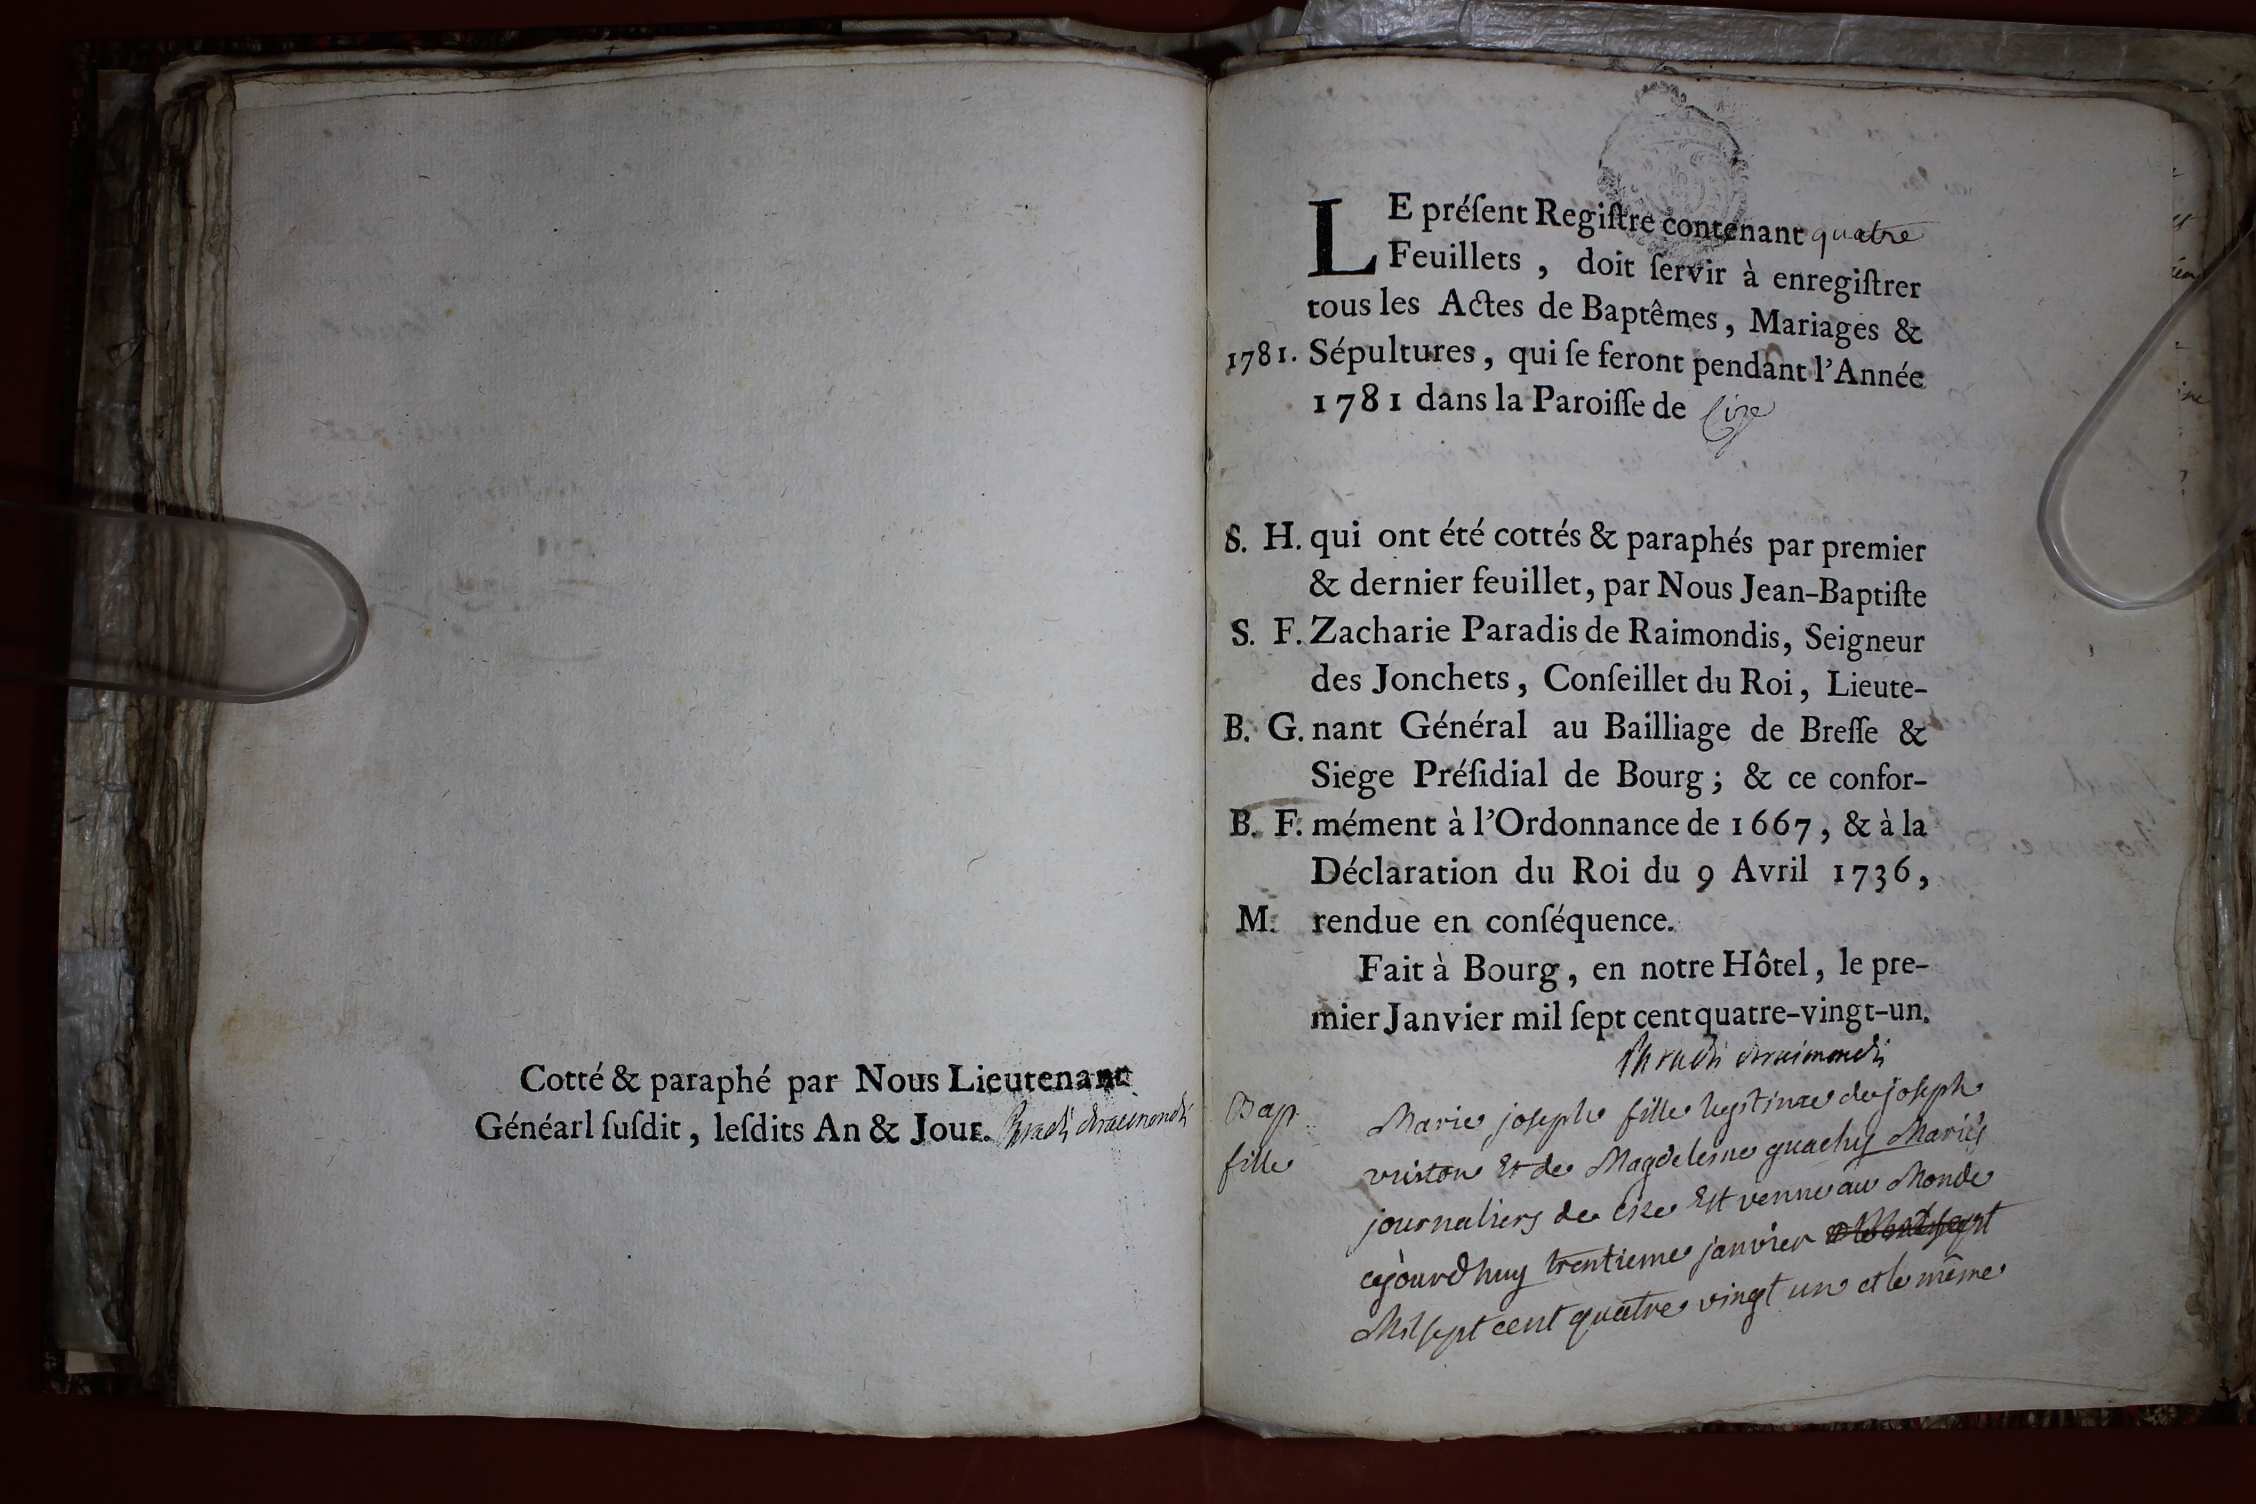 Cotté & paraphé par Nous Lieutenant
Généarl ſuſdit, leſdits An & Jour. Paradis deraimondis
LE préſent Regiſtre contenant quatre
Feuillets, doit ſervir à enregiſtrer
tous les Actes de Baptêmes, Mariages &
1781. Sépultures, qui ſe feront pendant l'Année
1781 dans la Paroiſſe de Cize
S. H. qui ont été cottés & paraphés par premier
& dernier feuillet, par Nous Jean-Baptiſte
S. F. Zacharie Paradis de Raimondis, Seigneur
des Jonchets, Conſeillet du Roi, Lieute-
B. G. nant Général au Bailliage de Breſſe &
Siege Préſidial de Bourg; & ce confor-
B. F. mément à l'Ordonnance de 1667, & à la
Déclaration du Roi du 9 Avril 1736,
M. rendue en conſéquence.
Fait à Bourg, en notre Hôtel, le pre-
mier Janvier mil ſept cent quatre-vingt-un.
Paradis deraimondis
Bap. Marie joseph fille legitime de joseph
fille et de Magdeleine Mariés
journaliers de cize Est venue au Monde
cejourdhuy trentieme janvier
Mil sept cent quatre vingt un et le même